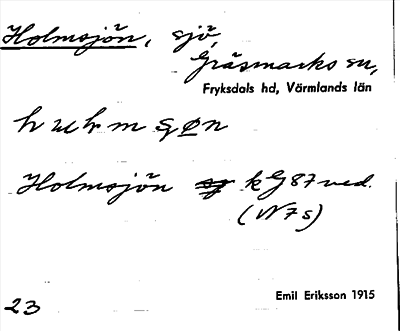 Holmsjön, sjö,
Gräsmarks sn,
Fryksdals hd, Värmlands län
Holmsjön kG87ved.
(N7s)
Emil Eriksson 1915
23